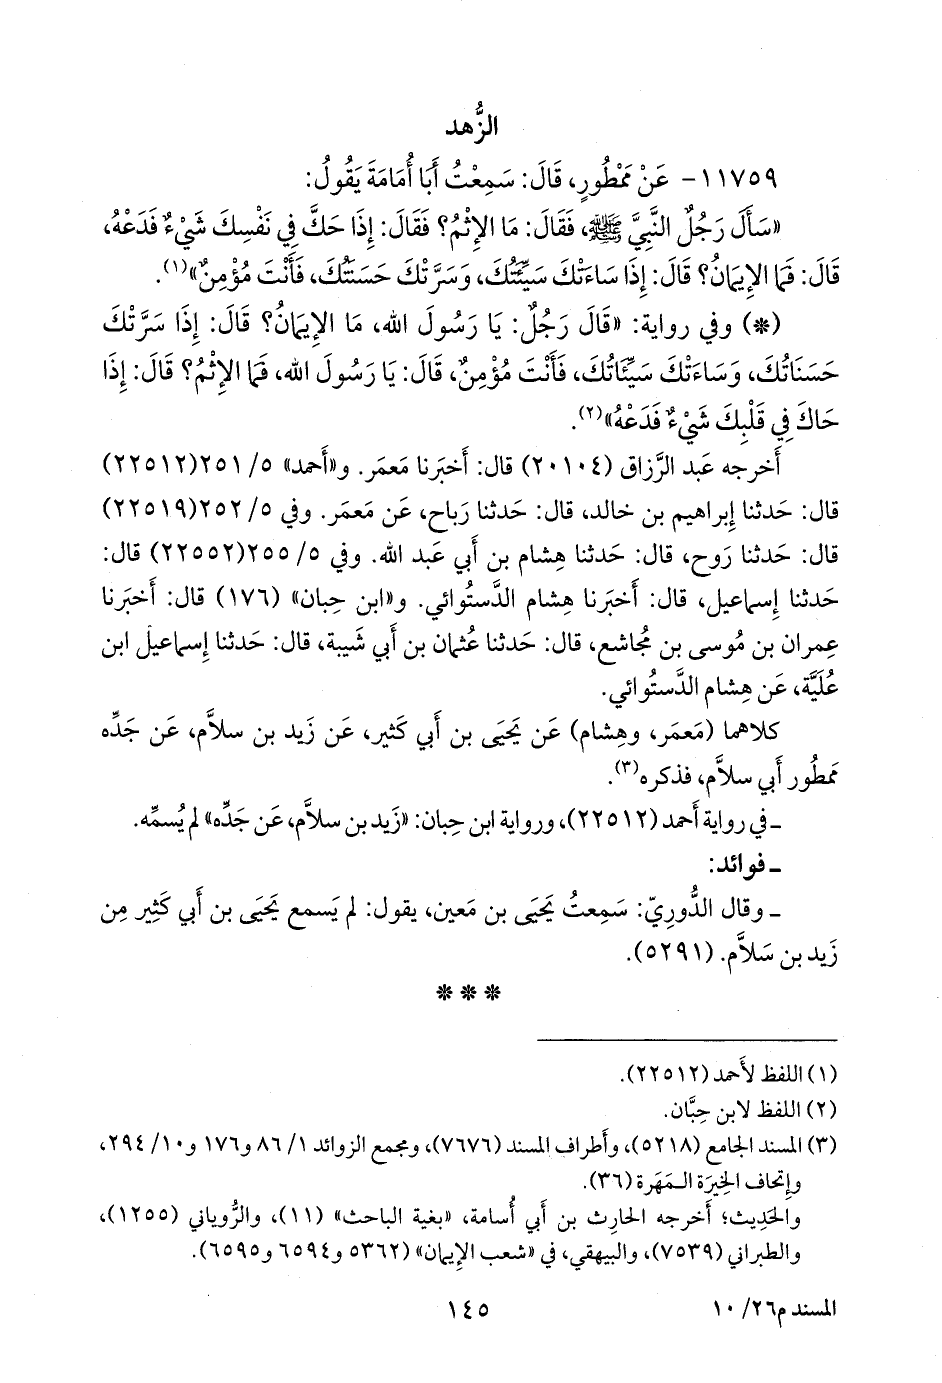 الزُّهد
١١٧٥٩- عَنْ مَمْطُورٍ، قَالَ: سَمِعْتُ أَبَا أُمَامَةَ يَقُولُ:
«سَأَلَ رَجُلٌ النَّبِيَّ ﷺ، فَقَالَ: مَا الإِثْمُ؟ فَقَالَ: إِذَا حَكَّ فِي نَفْسِكَ شَيْءٌ فَدَعْهُ،
قَالَ: فَمَا الإِيمَانُ؟ قَالَ: إِذَا سَاءَتْكَ سَيِّئَتُكَ، وَسَرَّتْكَ حَسَنَتُكَ، فَأَنْتَ مُؤْمِنٌ»(١).
(*) وفي رواية: «قَالَ رَجُلٌ: يَا رَسُولَ الله، مَا الإِيمَانُ؟ قَالَ: إِذَا سَرَّتْكَ
حَسَنَاتُكَ، وَسَاءَتْكَ سَيِّئَاتُكَ، فَأَنْتَ مُؤْمِنٌ، قَالَ: يَا رَسُولَ الله، فَمَا الإِثْمُ؟ قَالَ: إِذَا
حَاكَ فِي قَلْبِكَ شَيْءٌ فَدَعْهُ»(٢).
أَخرجه عَبد الرَّزاق (٢٠١٠٤) قال: أَخبَرنا مَعمَر. و«أَحمد» ٥/ ٢٥١(٢٢٥١٢)
قال: حَدثنا إِبراهيم بن خالد، قال: حَدثنا رَباح، عَن مَعمَر. وفي ٥/ ٢٥٢(٢٢٥١٩)
قال: حَدثنا رَوح، قال: حَدثنا هِشام بن أَبي عَبد الله. وفي ٥/ ٢٥٥(٢٢٥٥٢) قال:
حَدثنا إِسماعيل، قال: أَخبَرنا هِشام الدَّستُوائي. و«ابن حِبان» (١٧٦) قال: أَخبَرنا
عِمران بن مُوسى بن مُجاشع، قال: حَدثنا عُثمان بن أَبي شَيبة، قال: حَدثنا إِسماعيل ابن
عُلَيَّة، عَن هِشام الدَّستُوائي.
كلاهما (مَعمَر، وهِشام) عَن يَحيَى بن أَبي كَثير، عَن زَيد بن سلاَّم، عَن جَدِّه
مَمطُور أَبي سلاَّم، فذكره(٣).
ـ في رواية أَحمد (٢٢٥١٢)، ورواية ابن حِبان: «زَيد بن سلاَّم، عَن جَدِّه» لم يُسمِّه.
ـ فوائد:
ـ وقال الدُّورِيّ: سَمِعتُ يَحيَى بن مَعين، يقول: لم يَسمع يَحيَى بن أَبي كَثِير مِن
زَيد بن سَلاَّم. (٥٢٩١).
* * *
(١) اللفظ لأَحمد (٢٢٥١٢).
(٢) اللفظ لابن حِبَّان.
(٣) المسند الجامع (٥٢١٨)، وأَطراف المسند (٧٦٧٦)، ومجمع الزوائد ١/ ٨٦ و١٧٦ و١٠/ ٢٩٤،
وإِتحاف الخِيرَة الـمَهَرة (٣٦).
والحَدِيث؛ أَخرجه الحارِث بن أَبي أُسامة، «بغية الباحث» (١١)، والرُّوياني (١٢٥٥)،
والطبراني (٧٥٣٩)، والبيهقي، في «شعب الإِيمان» (٥٣٦٢ و٦٥٩٤ و٦٥٩٥).
المسند م٢٦/ ١٠
١٤٥